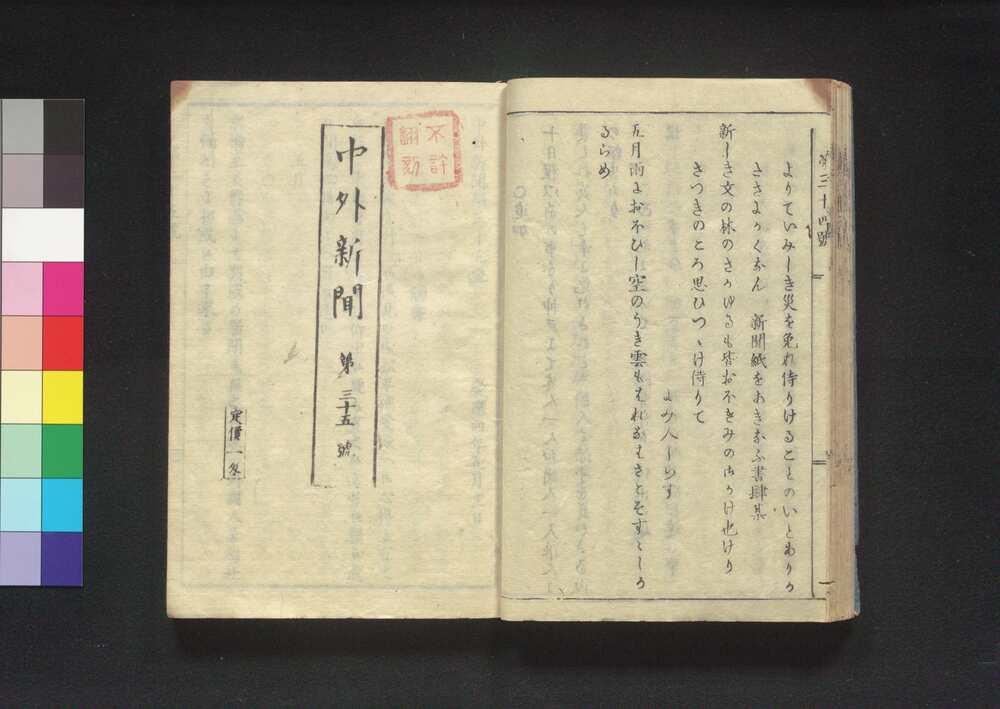 第三十四號
よりていみしき災を免れ侍りけることのいとありか
ささよりくなん 新聞紙をあきなふ書肆某
新しき文の林のさかゆるも皆おほきみのみかけ也けり
さつきのころ思ひつゝけ侍りて
よみ人しらす
五月雨におほひし空のうき雲もはれなはさこそすゝしか
るらめ
不許
翻刻
中外新聞 第三十五號
定價一匁